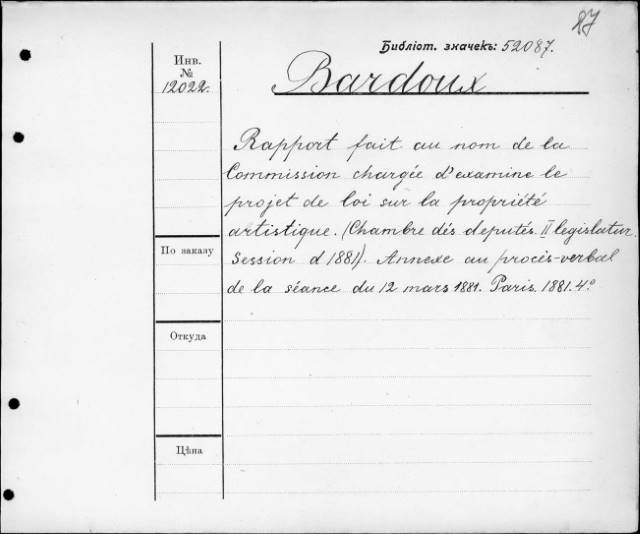 87
Библіот. значекъ: 52087.
Инв.
№
12022.
Bardoux
Rapport fait au nom de la
Commission chargée d'examine le
projet de loi sur la propriété
artistique. (Chambre dés deputés. II legislatur.
Session d 1881). Annexe au procès-verbal
de la séance du 12 mars 1881. Paris. 1881. 4º
По заказу
Откуда
Цѣна